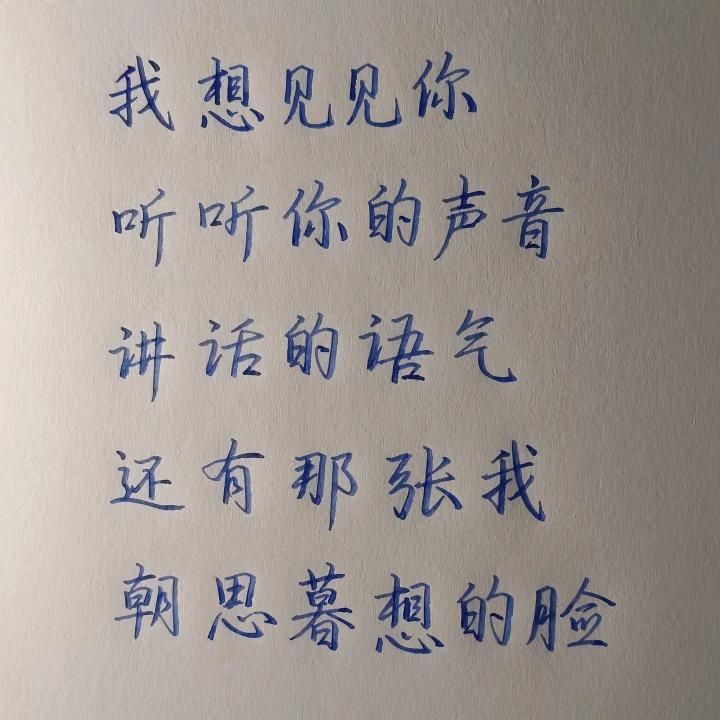 我想见见你
听听你的声音
讲话的语气
还有那张我
朝思暮想的脸